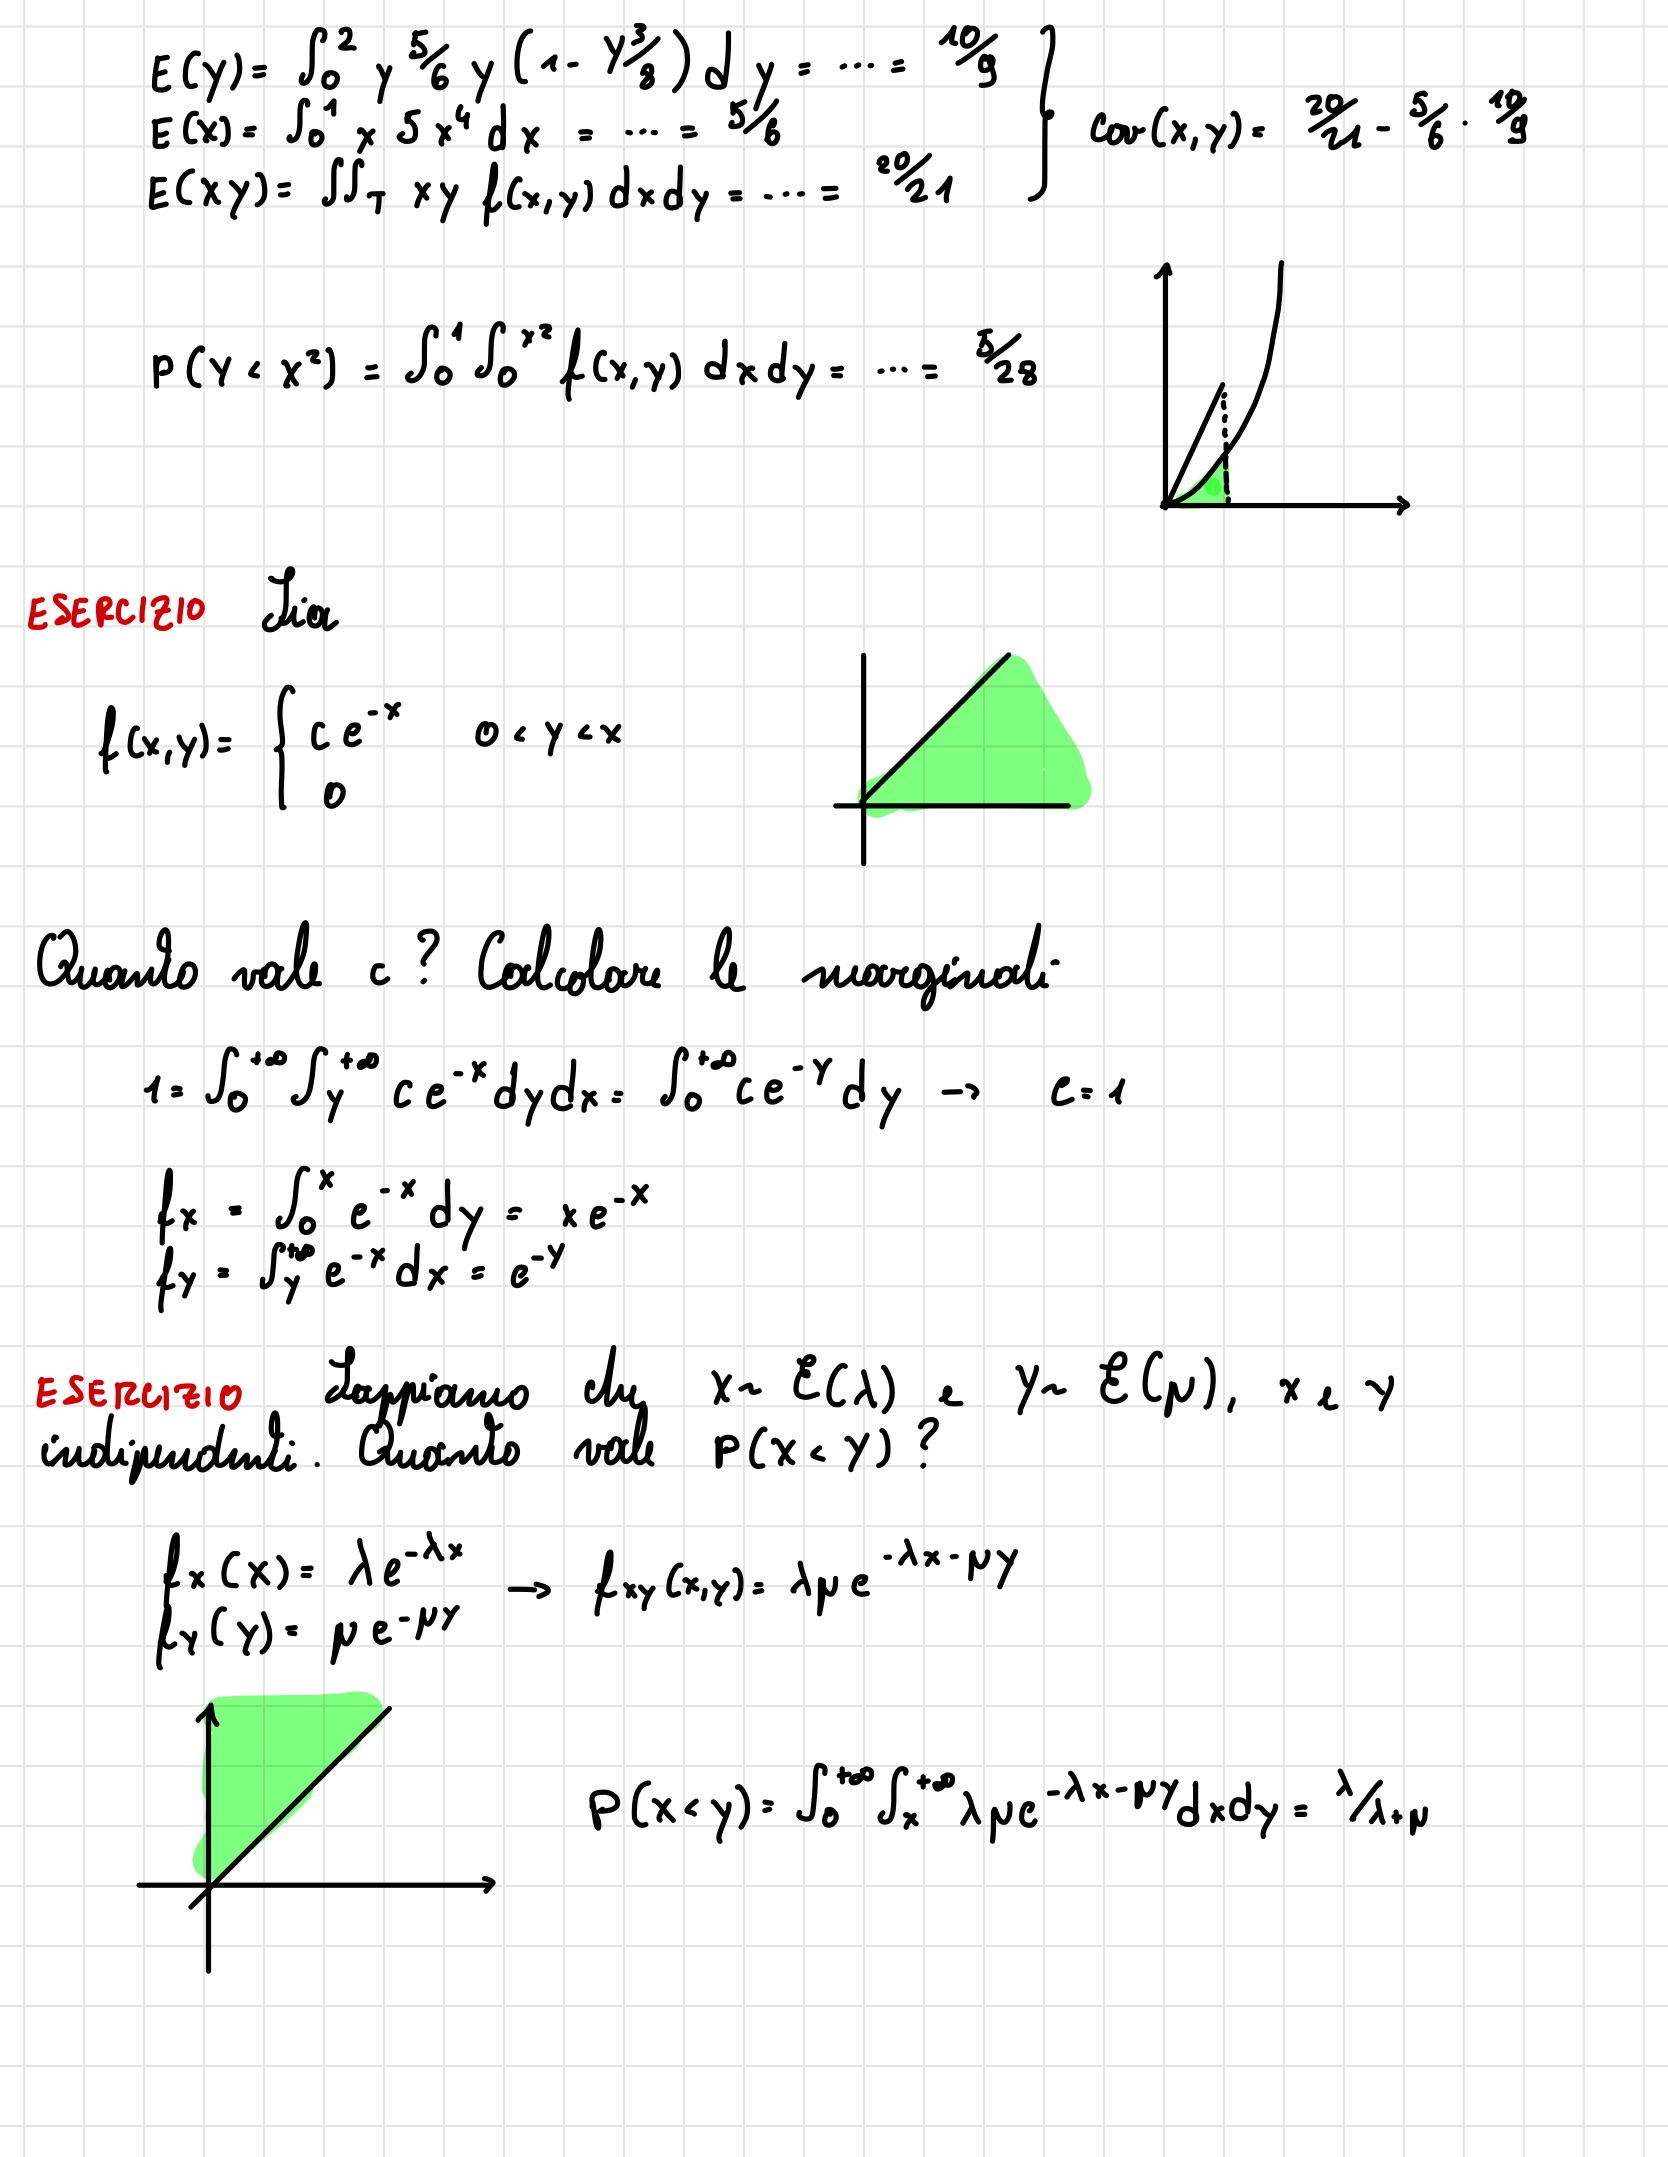 E(y) = ∫₀² y 5/6 y (1 - y³/8) dy = ... = 10/9
E(x) = ∫₀¹ x 5x⁴ dx = ... = 5/6
E(xy) = ∫∫_T xy f(x,y) dxdy = ... = 20/21
Cov(x,y) = 20/21 - 5/6 · 10/9
P(Y < X²) = ∫₀¹ ∫₀^x² f(x,y) dxdy = ... = 5/28
ESERCIZIO Sia
f(x,y) = { c e^-x 0 < y < x
0
Quanto vale c? Calcolare le marginali
1 = ∫₀^+∞ ∫_y^+∞ c e^-x dydx = ∫₀^+∞ c e^-y dy → c = 1
fx = ∫₀^x e^-x dy = x e^-x
fy = ∫_y^+∞ e^-x dx = e^-y
ESERCIZIO Sappiamo che X ~ ℰ(λ) e Y ~ ℰ(μ), x e y
indipendenti. Quanto vale P(X < Y)?
f_x(x) = λe^-λx
f_y(y) = μe^-μy
→ f_xy(x,y) = λμe^-λx-μy
P(X < Y) = ∫₀^+∞ ∫_x^+∞ λμe^-λx-μy dxdy = λ/λ+μ